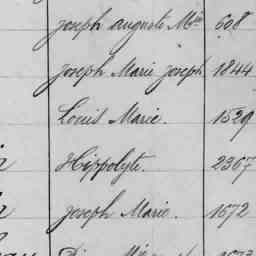 Joseph Auguste Mie 608
Joseph Marie Joseph 1844
Louis Marie. 1529
Hippolyte. 2367
Joseph Marie. 1672